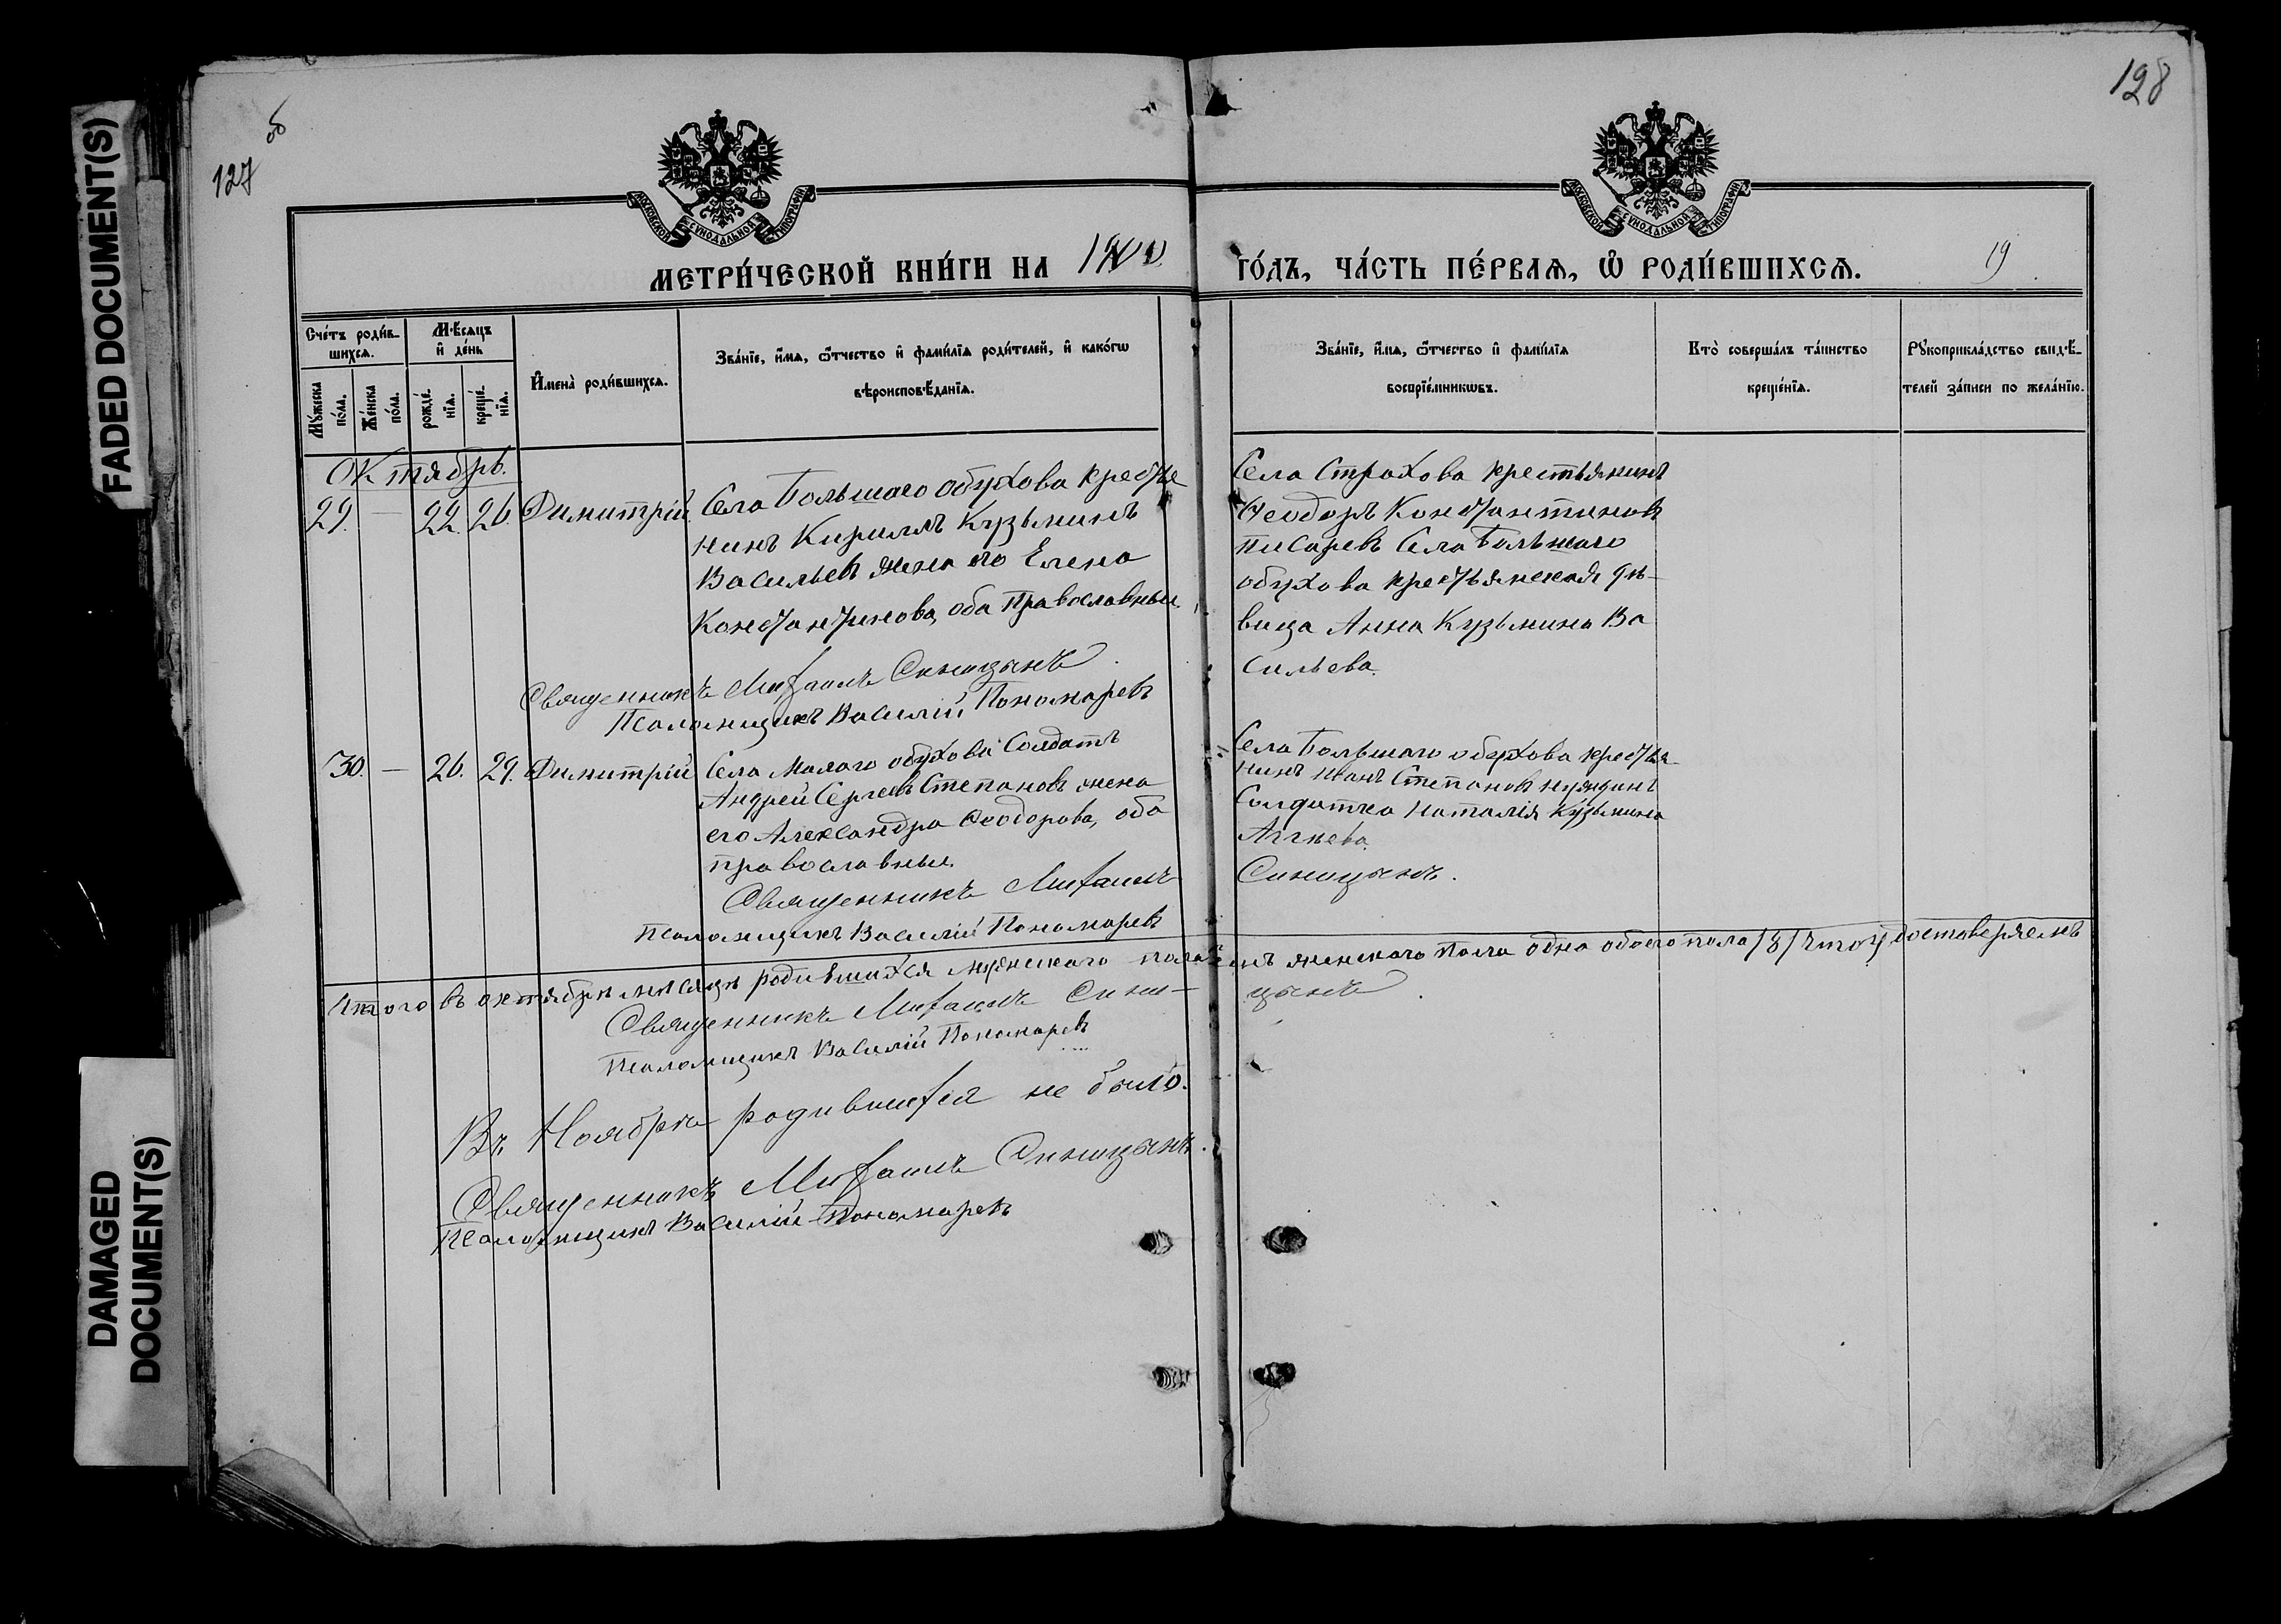 FADED DOCUMENT(S)
DAMAGED
DOCUMENT(S)
127
об
128
МОСКОВСКОЙ СУНОДАЛЬНОЙ ТИПОГРАФІИ
МОСКОВСКОЙ СУНОДАЛЬНОЙ ТИПОГРАФІИ
МЕТРИ́ЧЕСКОЙ КНИ́ГИ НА 1900
ГО́ДЪ, ЧА́СТЬ ПЕ́РВАѦ, Ѡ РОДИ́ВШИХСѦ.
19
Сче́тъ роди́в-
шихсѧ.
Мꙋ́жеска
по́ла.
Же́нска
по́ла.
Мѣ́сѧцъ
и де́нь
рожде́-
нїѧ.
креще́-
нїѧ.
И́мена̀ роди́вшихсѧ.
Зва́нїе, и́мѧ, ѻ́тчество и фами́лїѧ роди́телей, и како́гѡ
вѣроисповѣ́данїѧ.
Зва́нїе, и́мѧ, ѻ́тчество и фами́лїѧ
воспрїе́мникѡвъ.
Кто̀ соверша́лъ та́инство
креще́нїѧ.
Рꙋкоприкла́дство свидѣ́-
телей за́писи по жела́нїю.
Октябрь.
29. — 22. 26. Димитрій
Села Большаго обухова крестья
нинъ Кириллъ Кузьминъ
Васильевъ жена его Елена
Константинова, оба православные
Села Страхова крестьянинъ
Ѳеодоръ Константиновъ
Писаревъ Села Большаго
обухова крестьянская дѣ-
вица Анна Кузьмина Ва
сильева.
Священникъ Михаилъ Синицынъ
Псаломщикъ Василій Пономаревъ
30. — 26. 29. Димитрій
Села Малаго обухова Солдатъ
Андрей Сергѣевъ Степановъ жена
его Александра Ѳеодорова, оба
православные
Села Большаго обухова крестья-
нинъ Иванъ Степановъ
Солдатка Наталія Кузьмина
Священникъ Михаилъ Синицынъ.
Псаломщикъ Василій Пономаревъ
Итого въ октябрѣ мѣсяцѣ родившихся мужескаго пола семь женскаго пола одна обоего пола /8/ что и удостовѣряемъ
Священникъ Михаилъ Сини- цынъ
Псаломщикъ Василій Пономаревъ
Въ Ноябрѣ родившихся не было.
Священникъ Михаилъ Синицынъ.
Псаломщикъ Василій Пономаревъ